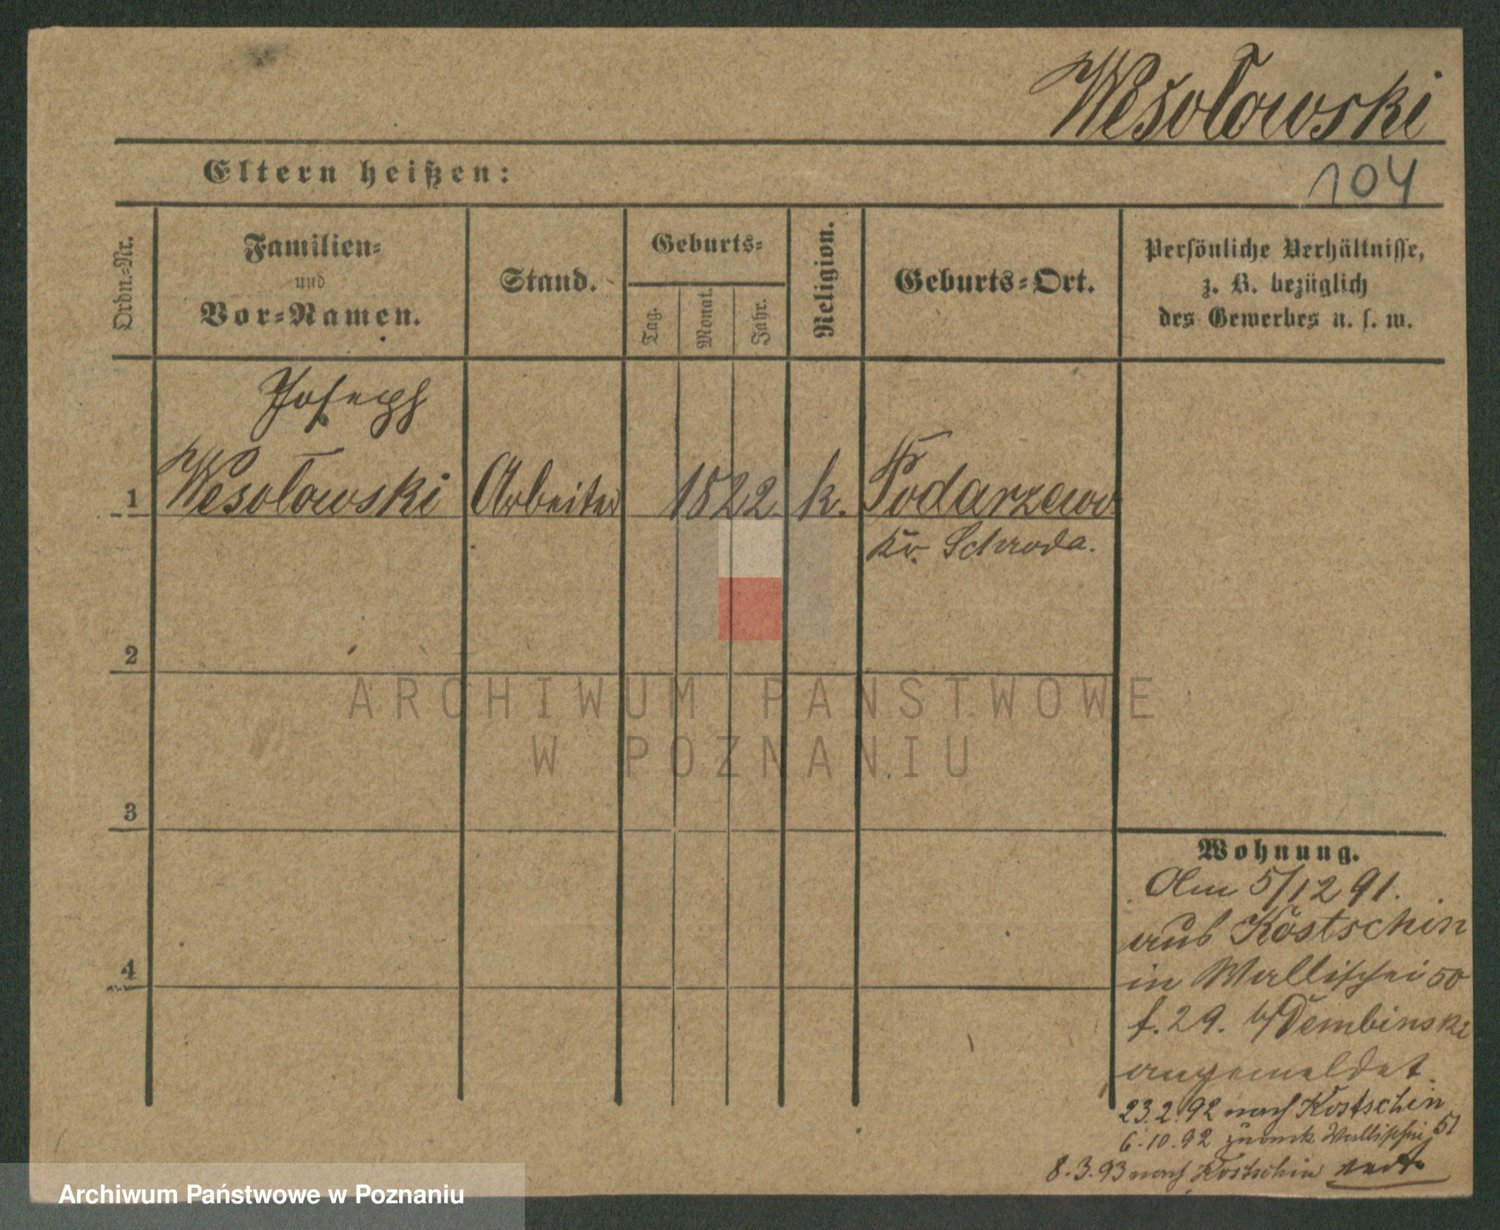 Wesołowski
Eltern heißen:
104
Ordn.=Nr.
Familien=
und
Vor=Namen.
Stand.
Geburts=
Tag.
Monat.
Jahr.
Religion.
Geburts=Ort.
Persönliche Verhältnisse,
z. B. bezüglich
des Gewerbes u. s. w.
Joseph
1 Wesołowski Arbeiter 1822 k. Podarzewo
Kr. Schroda.
2
3
4
ARCHIWUM PAŃSTWOWE
W POZNANIU
Wohnung.
Am 5/12 91.
aus Kostschin
in Wallischei 50
f. 29. b/Dembinski
angemeldet.
23.2.92 nach Kostschin
6.10.92 zurück Wallischei 51
8.3.93 nach Kostschin
Archiwum Państwowe w Poznaniu